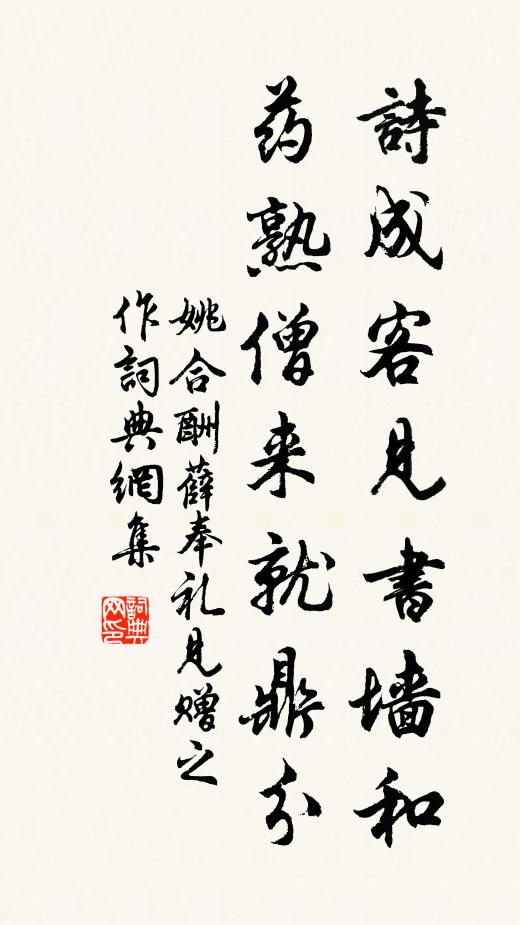 詩成客見書墙和
药熟僧来就鼎分
姚合酬薛奉礼見赠之
作詞典網集
詞典
网印